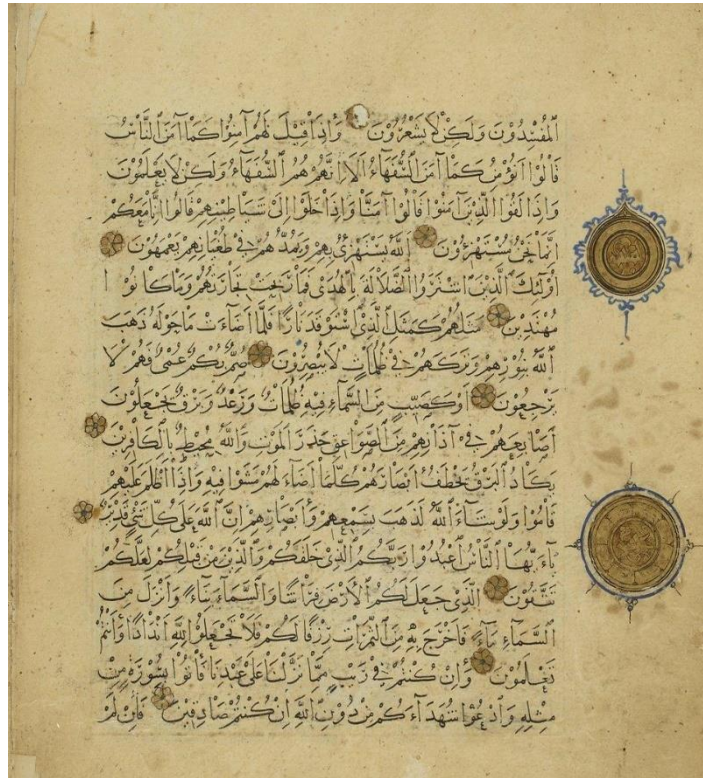 ٱلْمُفْسِدُونَ وَلَكِنْ لَا يَشْعُرُونَ وَإِذَا قِيلَ لَهُمْ آمِنُوا كَمَا آمَنَ ٱلنَّاسُ
قَالُوا أَنُؤْمِنُ كَمَا آمَنَ ٱلسُّفَهَاءُ أَلَا إِنَّهُمْ هُمُ ٱلسُّفَهَاءُ وَلَكِنْ لَا يَعْلَمُونَ
وَإِذَا لَقُوا ٱلَّذِينَ آمَنُوا قَالُوا آمَنَّا وَإِذَا خَلَوْا إِلَىٰ شَيَاطِينِهِمْ قَالُوا إِنَّا مَعَكُمْ
إِنَّمَا نَحْنُ مُسْتَهْزِءُونَ ٱللَّهُ يَسْتَهْزِئُ بِهِمْ وَيَمُدُّهُمْ فِي طُغْيَانِهِمْ يَعْمَهُونَ
أُولَٰئِكَ ٱلَّذِينَ ٱشْتَرَوُا ٱلضَّلَالَةَ بِٱلْهُدَىٰ فَمَا رَبِحَتْ تِجَارَتُهُمْ وَمَا كَانُوا
مُهْتَدِينَ مَثَلُهُمْ كَمَثَلِ ٱلَّذِي ٱسْتَوْقَدَ نَارًا فَلَمَّا أَضَاءَتْ مَا حَوْلَهُ ذَهَبَ
ٱللَّهُ بِنُورِهِمْ وَتَرَكَهُمْ فِي ظُلُمَاتٍ لَا يُبْصِرُونَ صُمٌّ بُكْمٌ عُمْيٌ فَهُمْ لَا
يَرْجِعُونَ أَوْ كَصَيِّبٍ مِنَ ٱلسَّمَاءِ فِيهِ ظُلُمَاتٌ وَرَعْدٌ وَبَرْقٌ يَجْعَلُونَ
أَصَابِعَهُمْ فِي آذَانِهِمْ مِنَ ٱلصَّوَاعِقِ حَذَرَ ٱلْمَوْتِ وَٱللَّهُ مُحِيطٌ بِٱلْكَافِرِينَ
يَكَادُ ٱلْبَرْقُ يَخْطَفُ أَبْصَارَهُمْ كُلَّمَا أَضَاءَ لَهُمْ مَشَوْا فِيهِ وَإِذَا أَظْلَمَ عَلَيْهِمْ
قَامُوا وَلَوْ شَاءَ ٱللَّهُ لَذَهَبَ بِسَمْعِهِمْ وَأَبْصَارِهِمْ إِنَّ ٱللَّهَ عَلَىٰ كُلِّ شَيْءٍ قَدِيرٌ
يَاءَيُّهَا ٱلنَّاسُ ٱعْبُدُوا رَبَّكُمُ ٱلَّذِي خَلَقَكُمْ وَٱلَّذِينَ مِنْ قَبْلِكُمْ لَعَلَّكُمْ
تَتَّقُونَ ٱلَّذِي جَعَلَ لَكُمُ ٱلْأَرْضَ فِرَاشًا وَٱلسَّمَاءَ بِنَاءً وَأَنْزَلَ مِنَ
ٱلسَّمَاءِ مَاءً فَأَخْرَجَ بِهِ مِنَ ٱلثَّمَرَاتِ رِزْقًا لَكُمْ فَلَا تَجْعَلُوا لِلَّهِ أَنْدَادًا وَأَنْتُمْ
تَعْلَمُونَ وَإِنْ كُنْتُمْ فِي رَيْبٍ مِمَّا نَزَّلْنَا عَلَىٰ عَبْدِنَا فَأْتُوا بِسُورَةٍ مِنْ
مِثْلِهِ وَٱدْعُوا شُهَدَاءَكُمْ مِنْ دُونِ ٱللَّهِ إِنْ كُنْتُمْ صَادِقِينَ فَإِنْ لَمْ